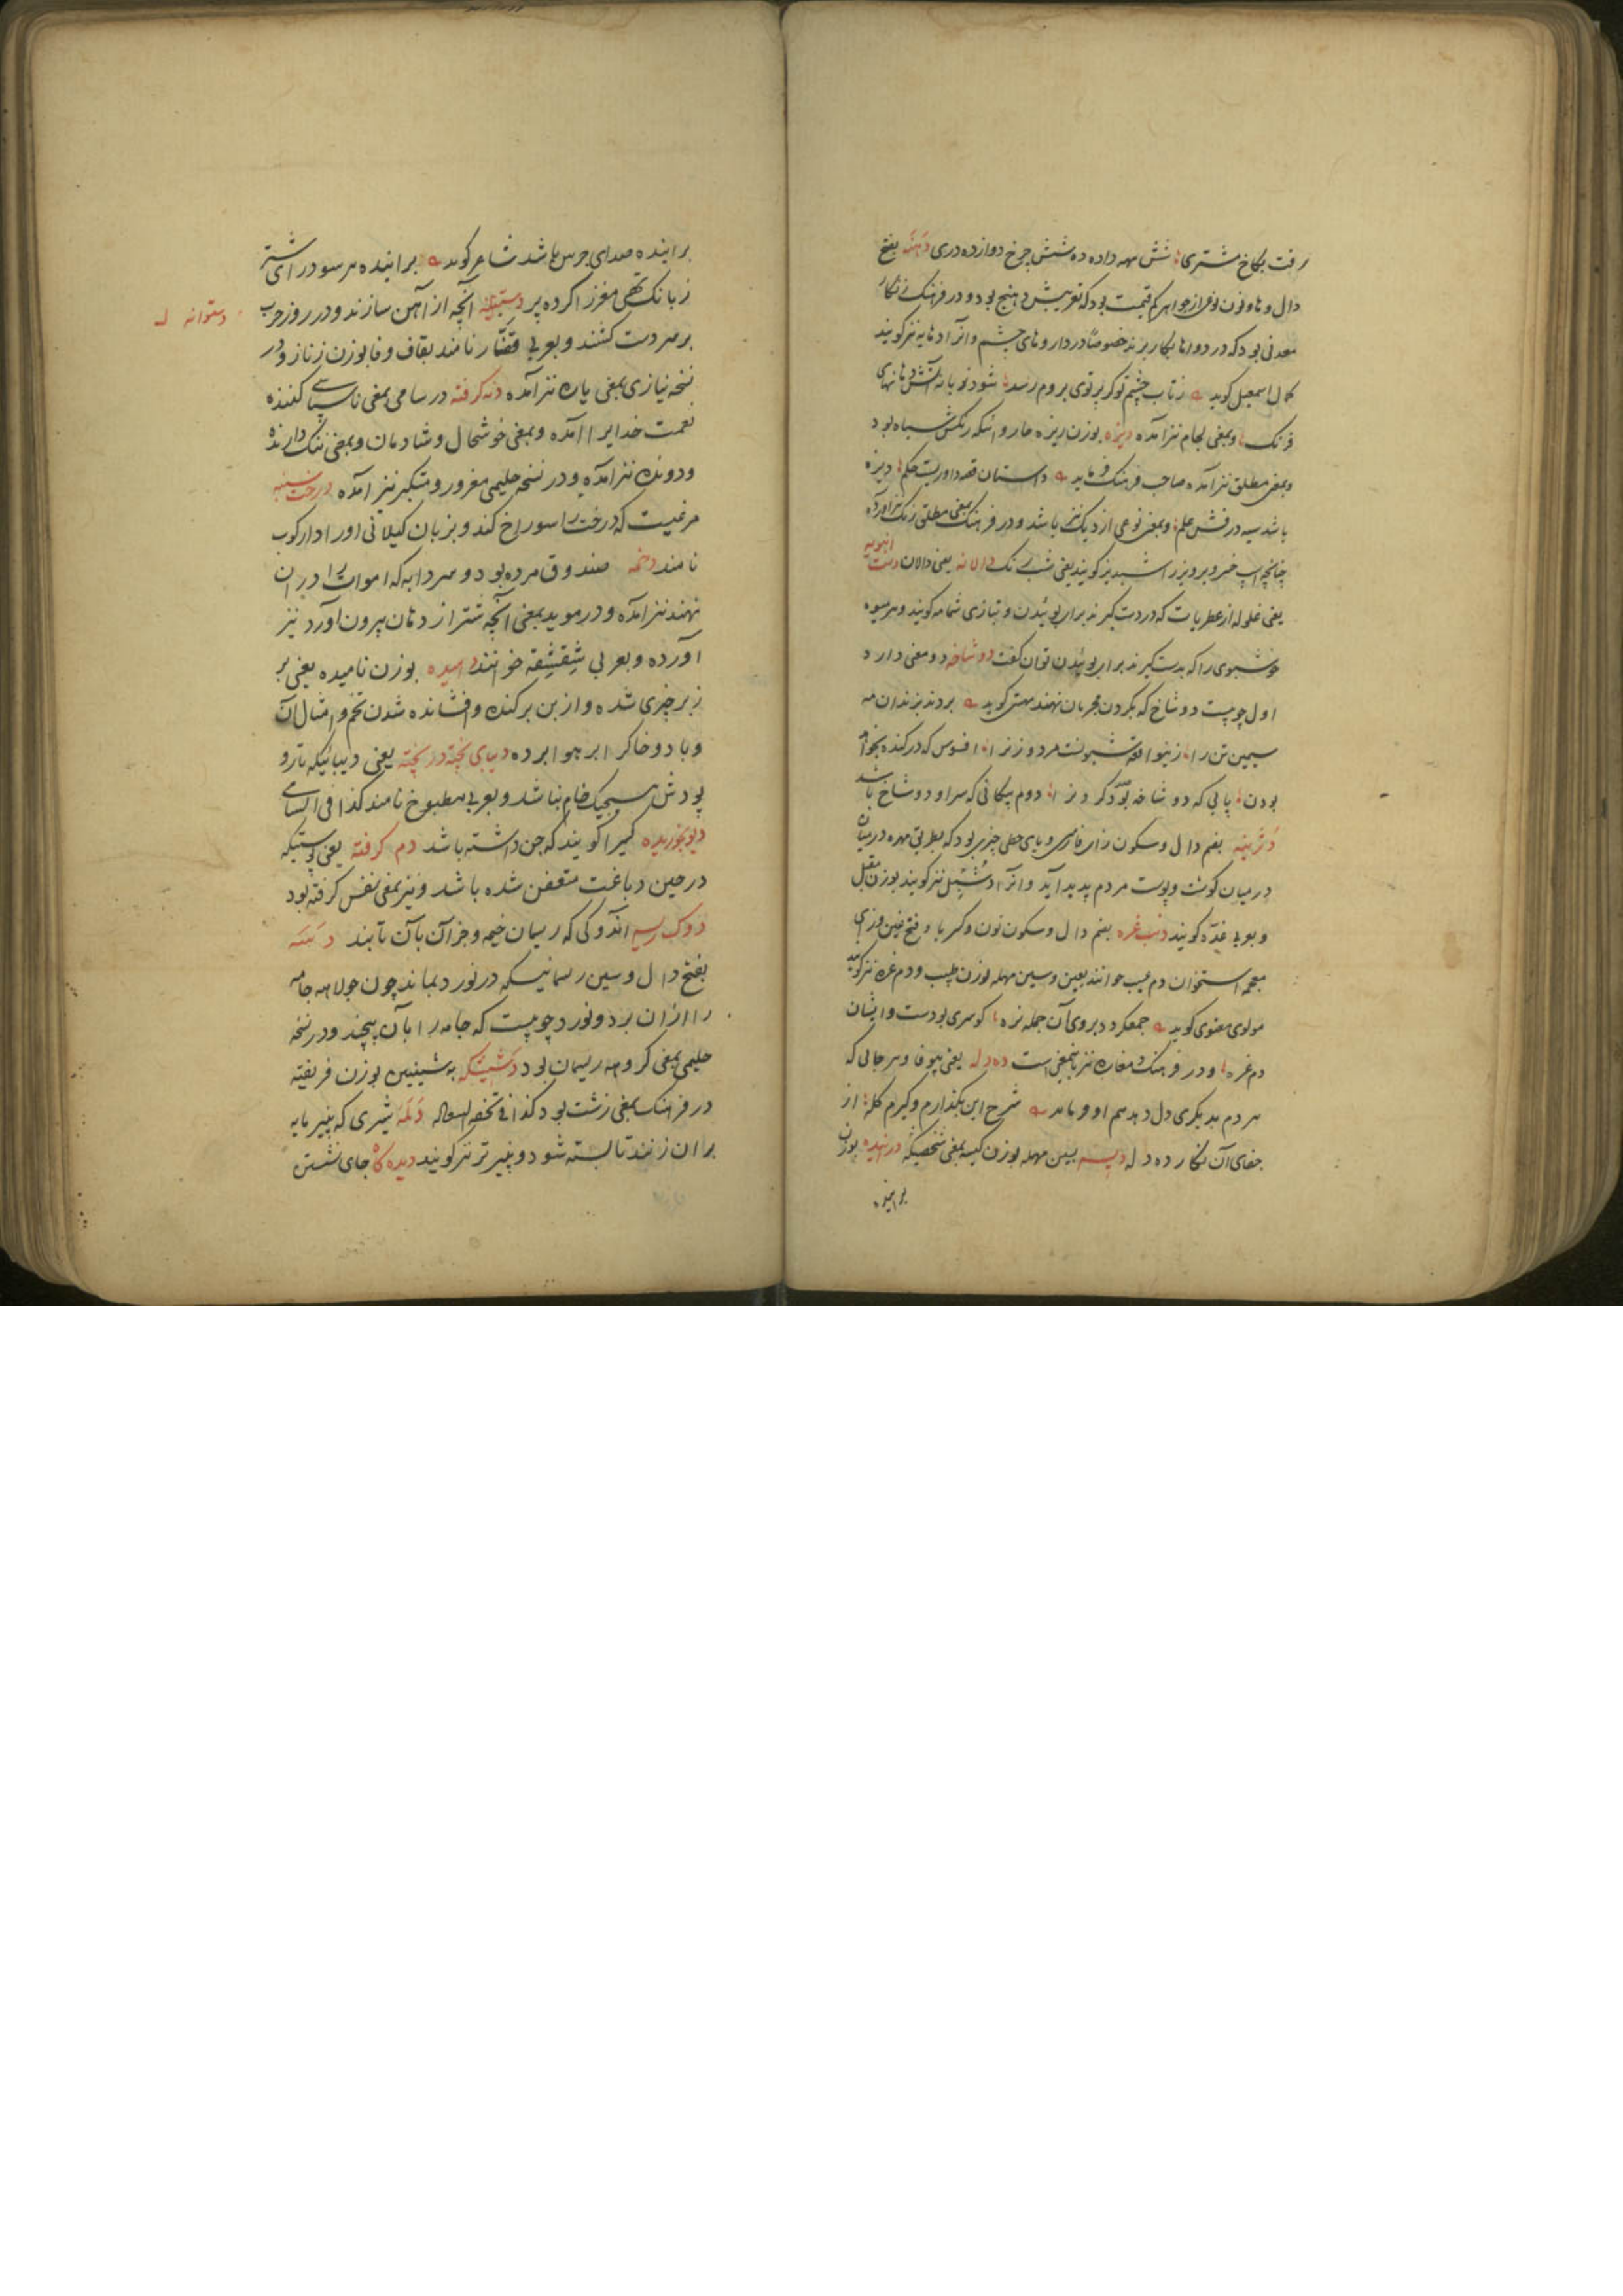 رفت بکاخ مشتری شش مهه داده ده شش چرخ دوازده دری دهنه بفتح
دال و ها و نون نوعی از جواهر کم قیمت بود که تعریبش دهنج بود و در فرهنک
معدنی بود که در دواها بکار برند خصوصا در داروهای چشم و انرا دهانه نیز کویند
کمال اسمعیل کوید ز تاب چشم تو کر پرتوی بروم رسد شود زبانه آتش دهانهای
فرنک و بمعنی لجام نیز آمده دیزه بوزن ریزه چاروائیکه رنکش سیاه بود
و بمعنی مطلق نیز آمده صاحب فرهنک فرماید داستان حکم دیزه
باشد سیه درفش علم و بمعنی نوعی از دیک نیز باشد و در فرهنک بمعنی مطلق رنک نیز آورده
چنانچه اسب خسرو پرویز را شبدیز کویند یعنی شب رنک دالانه یعنی دالان دست انبویه
یعنی غلوله از عطریات که در دست کیرند برای بوئیدن و بتازی شمامه کویند و هر میوه
خوشبوی را که بدست کیرند برای بوئیدن توان کفت دو شاخه دو معنی دارد
اول چوبیست دو شاخ که بکردن مجرمان نهند کوید بردند بزندان مه
سیمین تن را زینواقعه شیونست مرد و زن را افسوس که در کنده بخواهد
بودن پایی که دو شاخه بود کردن را دوم پیکانی که سر او دو شاخ باشد
دژپیه بضم دال و سکون زای فارسی و یای حطی چیزی بود که بطریق مهره در میان
در میان کوشت و پوست مردم پدید آید و آنرا دشپل نیز کویند بوزن مقبل
و بعربی غده کویند دنب غزه بضم دال و سکون نون و کسر با و فتح غین و زای
معجمه استخوان دم عسیب خوانند بعین و سین مهمله بوزن طبیب و دم غزه نیز کویند
مولوی معنوی کوید جمع کرد بروی آن جمله نره کوسری بودست و ایشان
دم غزه و در فرهنک دمغازه نیز باینمعنی است ده دله یعنی بیوفا و هرجایی که
هر دم بدیکری دل دهد هم او فرماید شرح این بکذارم و کیرم کله از
جفای آن نکار ده دله دیسه بسین مهمله بوزن کیسه بمعنی شخصیکه دراینده بوزن
براینده
براینده صدای جرس باشد شاعر کوید براینده هر سو درای شتر
ز بانک تهی مغز را کرده پر دستینه آنچه از آهن سازند و در روز حرب
دستوانه
بر سر دست کشند و بعربی قفاز نامند بقاف و فا بوزن زناز و در
نسخه نیازی بمعنی یاره نیز آمده دنه کرفته در سامی بمعنی ناسپاسی کننده
نعمت خدایرا آمده و بمعنی خوشحال و شادمان و بمعنی ننک دارنده
و دونده نیز آمده و در نسخه حلیمی مغرور و متکبر نیز آمده درخت سنبه
مرغیست که درخت را سوراخ کند و بزبان کیلانی او را دارکوب
نامند دخمه صندوق مرده بود و سردابه که اموات را در ان
نهند نیز آمده و در موید بمعنی آنچه شتر از دهان بیرون آورد نیز
آورده و بعربی شقشقه خوانند دمیده بوزن نامیده یعنی بر
زبر چیزی شده و از بن برکنده و افشانده شدن تخم و امثال آن
و باد و خاکر ابر هوا برده دیبای پخته در پخته یعنی دیبائیکه تار و
پودش هیچیک خام نباشد و بعربی مطبوخ نامند کذا فی السامی
دیو خوریده کسیرا کویند که جن داشته باشد دم کرفته یعنی پوستیکه
در حین دباغت متعفن شده باشد و نیز بمعنی نفس کرفته بود
دوک ریسه اندوکی که ریسمان خیمه و جز آن بآن تابند دسته
بفتح دال و سین ریسمانیکه در نورد بماند چون جولاهه جامه
را از ان برد و نورد چوبیست که جامه را بآن پیچند و در نسخه
حلیمی بمعنی کروهه ریسمان بود دشتیکه به شینین بوزن فریفته
در فرهنک بمعنی زشت بود کذا فی تحفه السعاله دلمه شیری که پنیر مایه
بران زنند تا بسته شود و پنیر تر نیز کویند دیده کاه جای نشستن